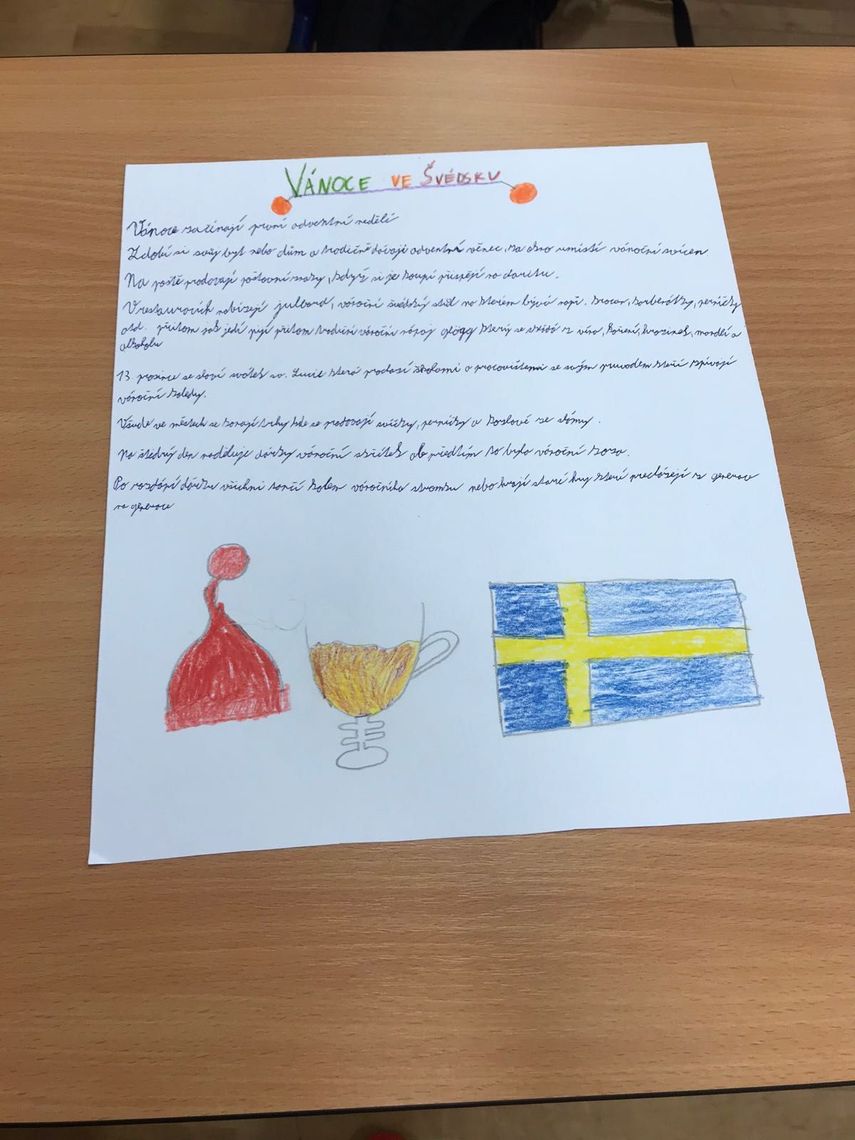 VÁNOCE VE ŠVÉDSKU
Vánoce začínají první adventní neděli
Zdobí si svůj byt nebo dům a tradičně dávají adventní věnec, na okno umístí vánoční svícen
Na poště prodávají poštovní známky, když si je koupí přispějí na charitu.
V restauracích nabízejí julbord, vánoční švédský stůl na kterém bývá např. karbenátky, perníčky
atd. přitom jak jedí pijí přitom tradiční vánoční nápoj glögg který se skládá z vína, koření, hrozinek, mandlí a
alkoholu
13. prosince se slaví svátek sv. Lucie která prochází školami a pracovištěmi se svým průvodem kteří zpívají
vánoční koledy.
Všude ve městech se konají trhy kde se prodávají svíčky, perníčky a kozlové ze slámy.
Na štědrý den naděluje dárky vánoční skřítek ale předtím to byla vánoční koza.
Po rozdání dárků všichni tančí kolem vánočního stromku nebo hrají staré hry které přecházejí z generace
na generace